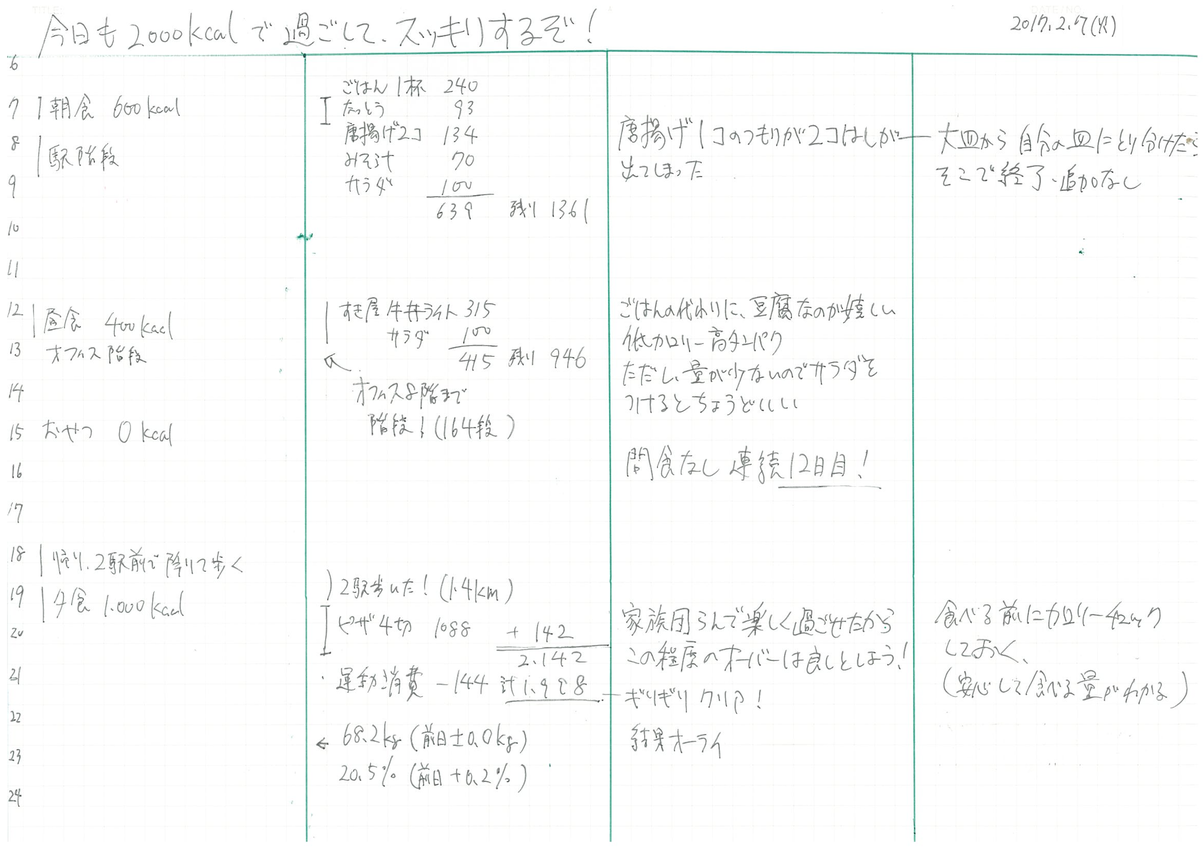 今日も2000kcalで過ごして、スッキリするぞ!
2017.2.7(火)
6
7 朝食 600kcal
8 駅階段
9
10
11
12 昼食 400kcal
13 オフィス階段
14
15 おやつ 0kcal
16
17
18 帰り、2駅前で降りて歩く
19 夕食 1.000kcal
20
21
22
23
24
ごはん1杯 240
なっとう 93
唐揚げ2コ 134
みそ汁 70
サラダ 100
639 残り 1361
すき屋 牛丼ライト 315
サラダ 100
415 残り 946
オフィス8階まで
階段!(164段)
)2駅歩いた!(1.4km)
ピザ4切 1088 +142
2.142
運動消費 -144 計1.998
← 68.2kg(前日±0.0kg)
20.5%(前日+0.2%)
唐揚げ1コのつもりが2コはしが
出てしまった
ごはんの代わりに、豆腐なのが嬉しい
低カロリー高タンパク
ただし、量が少ないのでサラダを
つけるとちょうどいい
間食なし 連続12日目!
家族団らんで楽しく過ごせたから
この程度のオーバーは良しとしよう!
ギリギリクリア!
結果オーライ
大皿から自分の皿にとり分けたら
そこで終了、追加なし
食べる前にカロリーチェック
しておく、
(安心して食べる量がわかる)